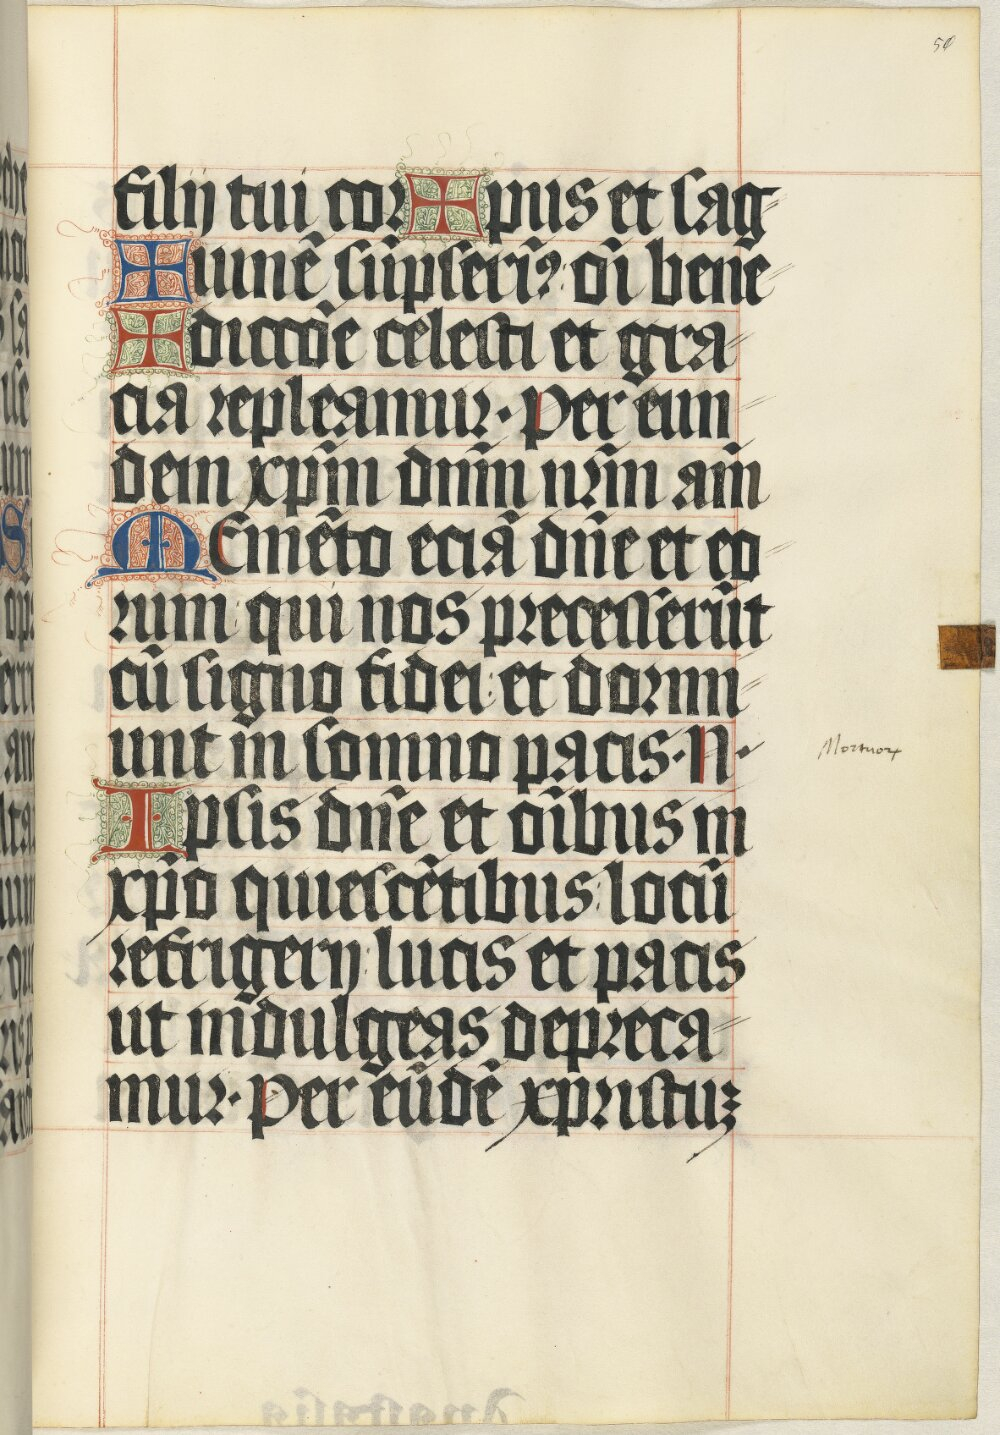 50
filij tui cor✠pus et sag
✠uinē sūpseri᷑? oī bene
✠diccōe celesti et gra
cia repleamur. Per eun
dem xp̄m dnm̄ nrm̄ am̄
Memēto eciā dn̄e et eo
rum qui nos precesserūt
cū signo fidei et dormi
unt in somno pacis. N.
Mortuor
Ipsis dn̄e et oībus in
xp̄o quiescētibus locū
refrigerij lucis et pacis
ut indulgeas depreca
mur. Per eūdē xpristuꝫ